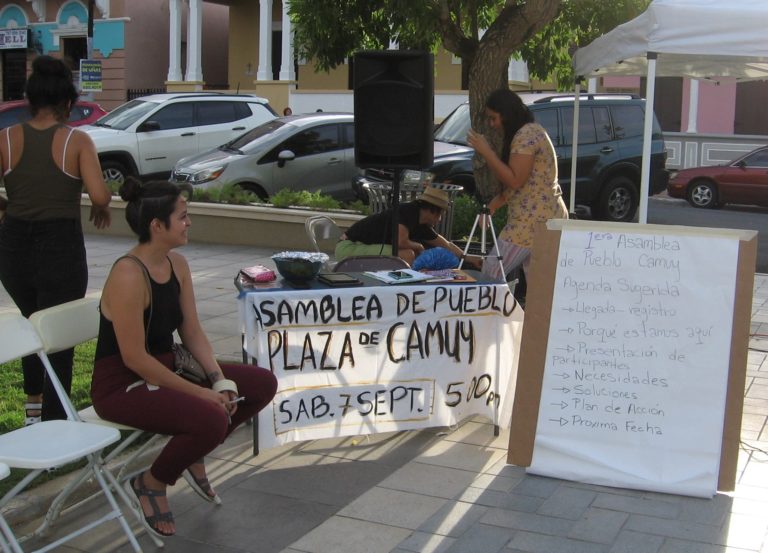 ELL
ASAMBLEA DE PUEBLO
PLAZA DE CAMUY
SAB. 7 SEPT. 5:00 PM
1era Asamblea
de Pueblo Camuy
Agenda Sugerida
→ Llegada - registro
→ Porqué estamos aquí
→ Presentación de
participantes
→ Necesidades
→ Soluciones
→ Plan de Acción
→ Proxima Fecha